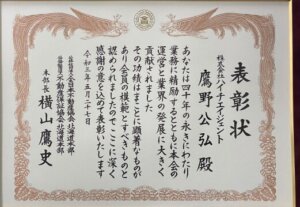 表彰状
株式会社ハイナイエージェント
鷹野公弘殿
あなたは四十年の永きにわたり
業務に精励するとともに本会の
運営と業界の発展に大きく
貢献されました
その功績はまことに顕著なものが
あり会員の模範とすべきものと
認められましたのでここに深く
感謝の意を込めて表彰いたします
令和三年五月二十七日
公益社団法人全日本不動産協会北海道本部
公益社団法人不動産保証協会北海道本部
本部長 横山鷹史